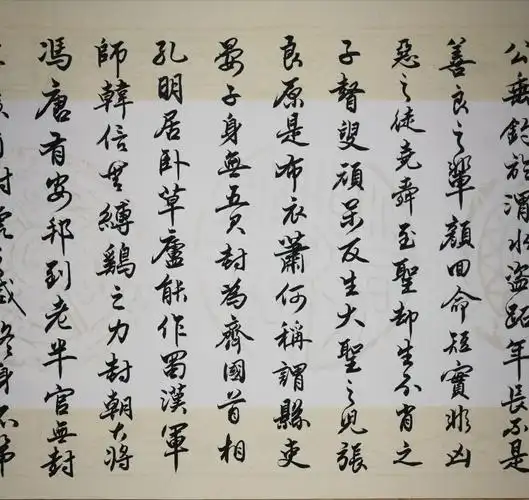 公垂釣於渭水盜跖年長不是
善良之輩顏回命短實非凶
惡之徒堯舜至聖却生不肖之
子瞽叟頑呆反生大聖之兒張
良原是布衣蕭何稱謂縣吏
晏子身無五尺封為齊國首相
孔明居卧草廬能作蜀漢軍
師韓信無縛鷄之力封朝大將
馮唐有安邦到老半官無封
射虎之威終身不第